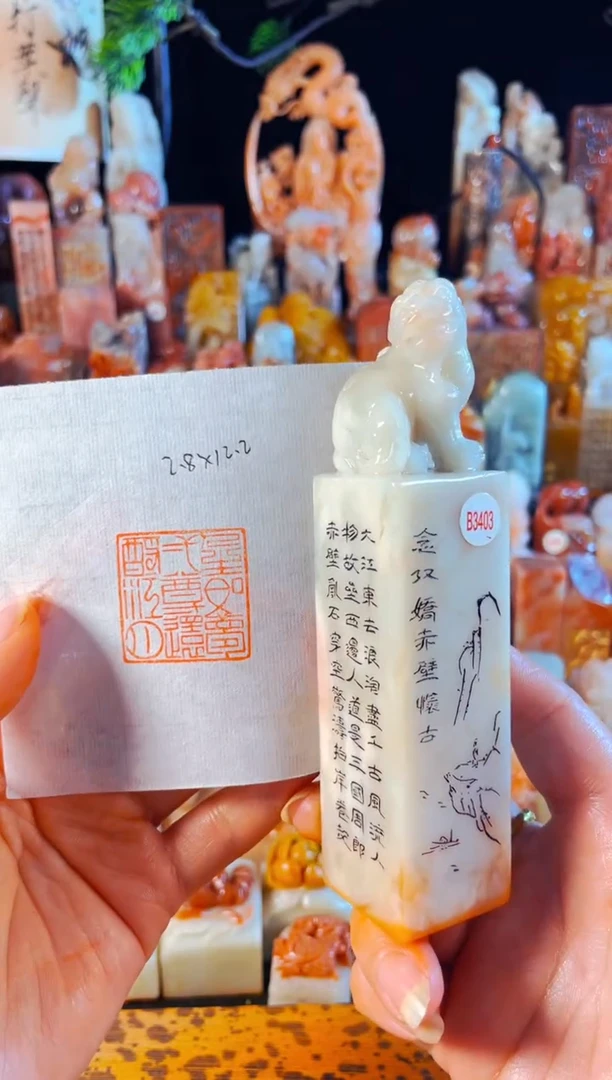 2.8X12.2
人生如夢
一尊還
酹江月
B3403
念奴嬌赤壁懷古
大江東去浪淘盡千古風流人
物故壘西邊人道是三國周郎
赤壁亂石穿空驚濤拍岸卷